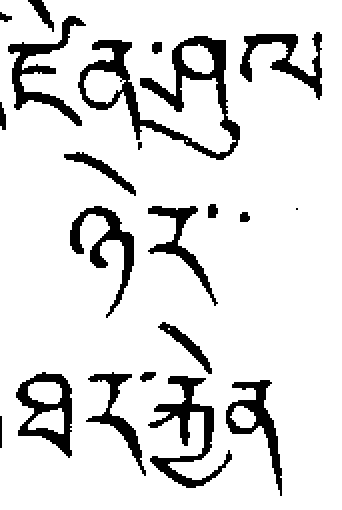 ཇོན་ཤུལ
ཉེར་
ཐར་རྐྱེན